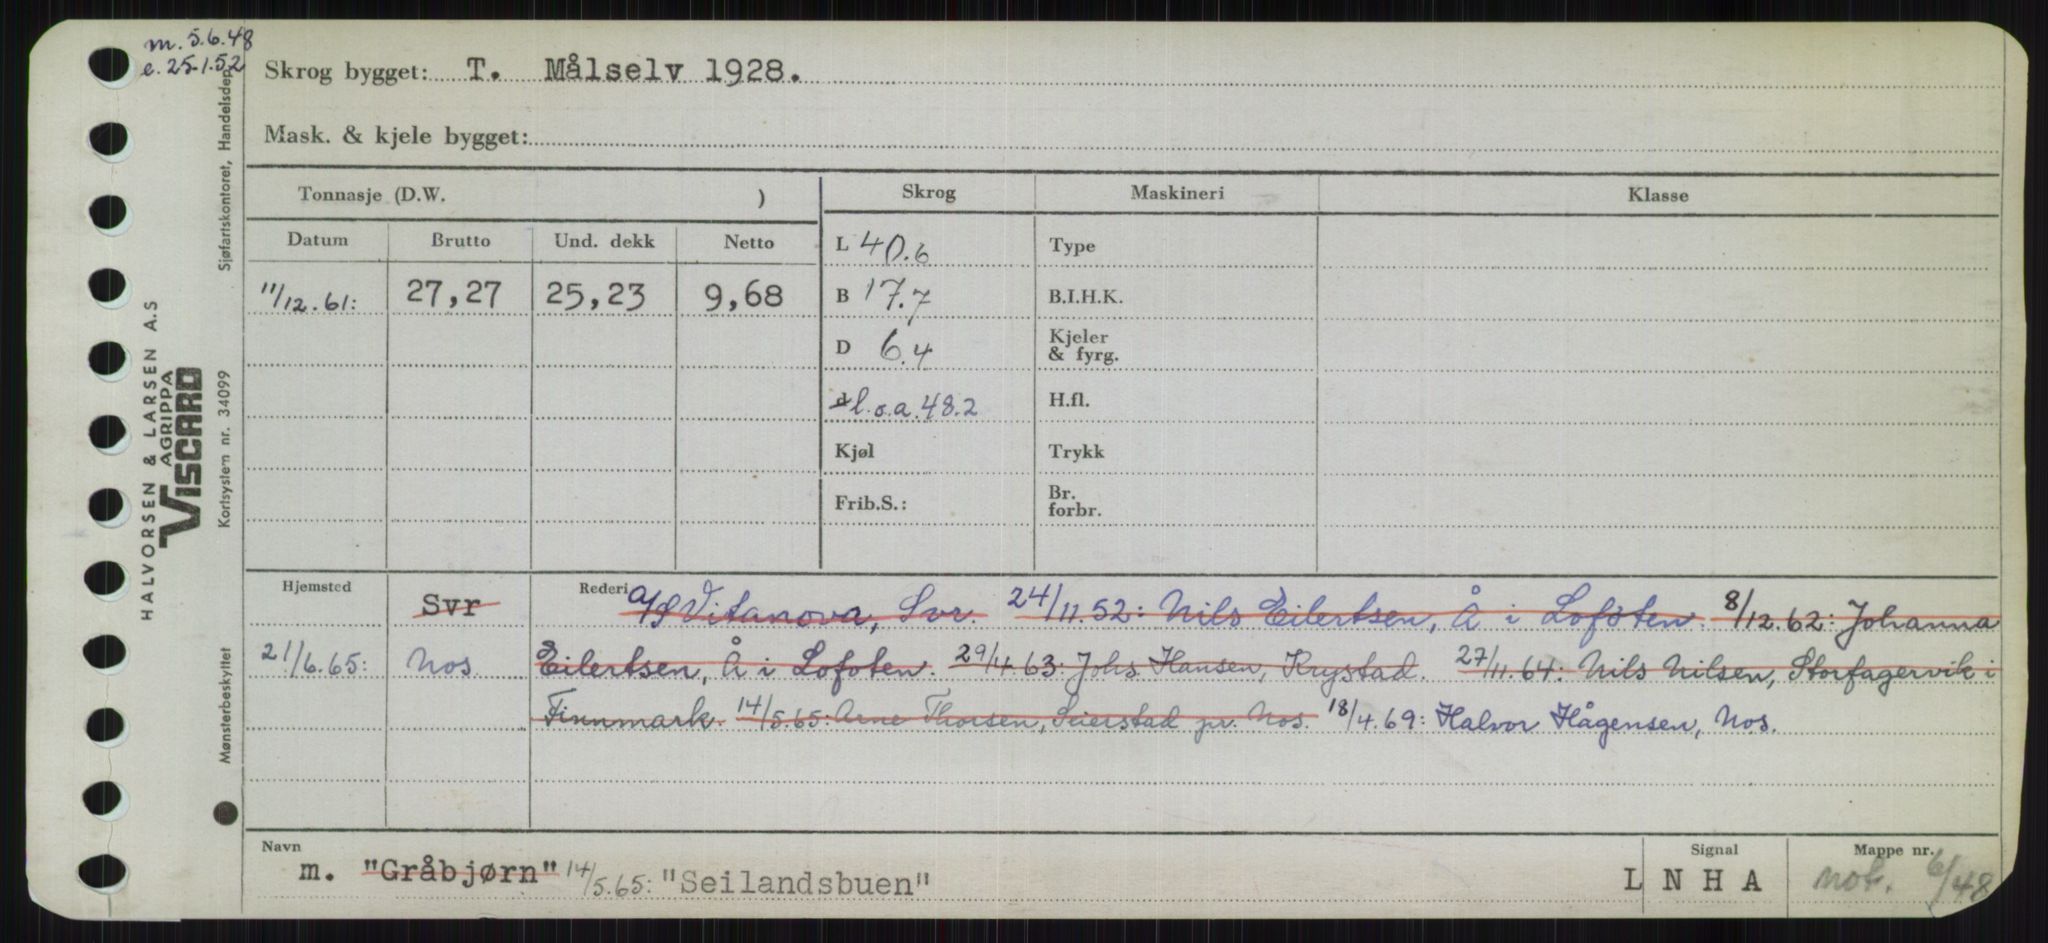 m. 5.6.48
e. 25.1.52
Skrog bygget: T. Målselv 1928.
Mask. & kjele bygget:
Tonnasje (D.W. )
Skrog
Maskineri
Klasse
Datum
Brutto
Und. dekk
Netto
11/12.61:
27,27
25,23
9,68
L 40.6
B 17.7
D 6.4
d l.o.a. 48.2
Kjøl
Frib.S.:
Type
B.I.H.K.
Kjeler
& fyrg.
H.fl.
Trykk
Br.
forbr.
Hjemsted
Svr
21/6.65: Nos.
Rederi A/S Vitanova, Svr. 24/11.52: Nils Eilertsen, Å i Lofoten. 8/12.62: Johanna
Eilertsen, Å i Lofoten. 29/4.63: Johs Hansen, Krystad. 27/11.64: Nils Nilsen, Storfagervik i
Finnmark. 14/5.65: Arne Thorsen, Seierstad pr. Nos. 18/4.69: Halvor Hågensen, Nos.
Navn
m. "Gråbjørn" 14/5.65: "Seilandsbuen"
Signal
LNHA
Mappe nr.
not. 6/48
HALVORSEN & LARSEN A.S
AGRIPPA
VISCARD
Kortsystem nr. 34099
Sjøfartskontoret, Handelsdep
Mønsterbeskyttet